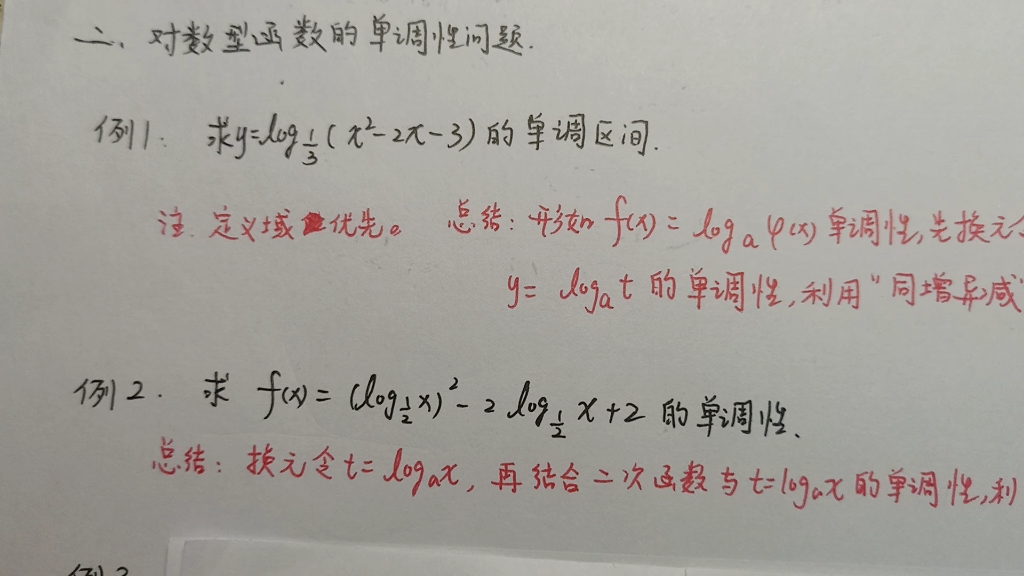 二、对数型函数的单调性问题.
例1. 求y=log_{1/3}(x²-2x-3)的单调区间.
注. 定义域优先。 总结: 形如 f(x)=log_a φ(x) 单调性,先换元
y= log_a t 的单调性,利用"同增异减"
例2. 求 f(x)=(log_{1/2}x)²-2log_{1/2}x+2 的单调性、
总结: 换元令t=log_a x, 再结合二次函数与t=log_a x的单调性,利